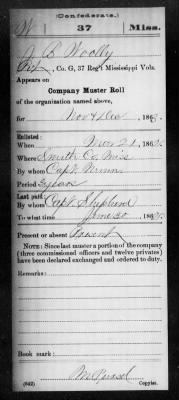 (Confederate.)
W 37 Miss.
J. B. Woolly
Pvt, Co. G, 37 Reg't Mississippi Vols.
Appears on
Company Muster Roll
of the organization named above,
for Nov & Dec, 186
Enlisted:
When Mar 21, 1862.
Where Smith Co. Miss
By whom Capt.
Period 3 years
Last paid:
By whom Capt. Shepherd
To what time June 30, 186
Present or absent Present
NOTE: Since last muster a portion of the company
(three commissioned officers and twelve privates)
have been declared exchanged and ordered to duty.
Remarks:
Book mark:
(642)
Copyist.